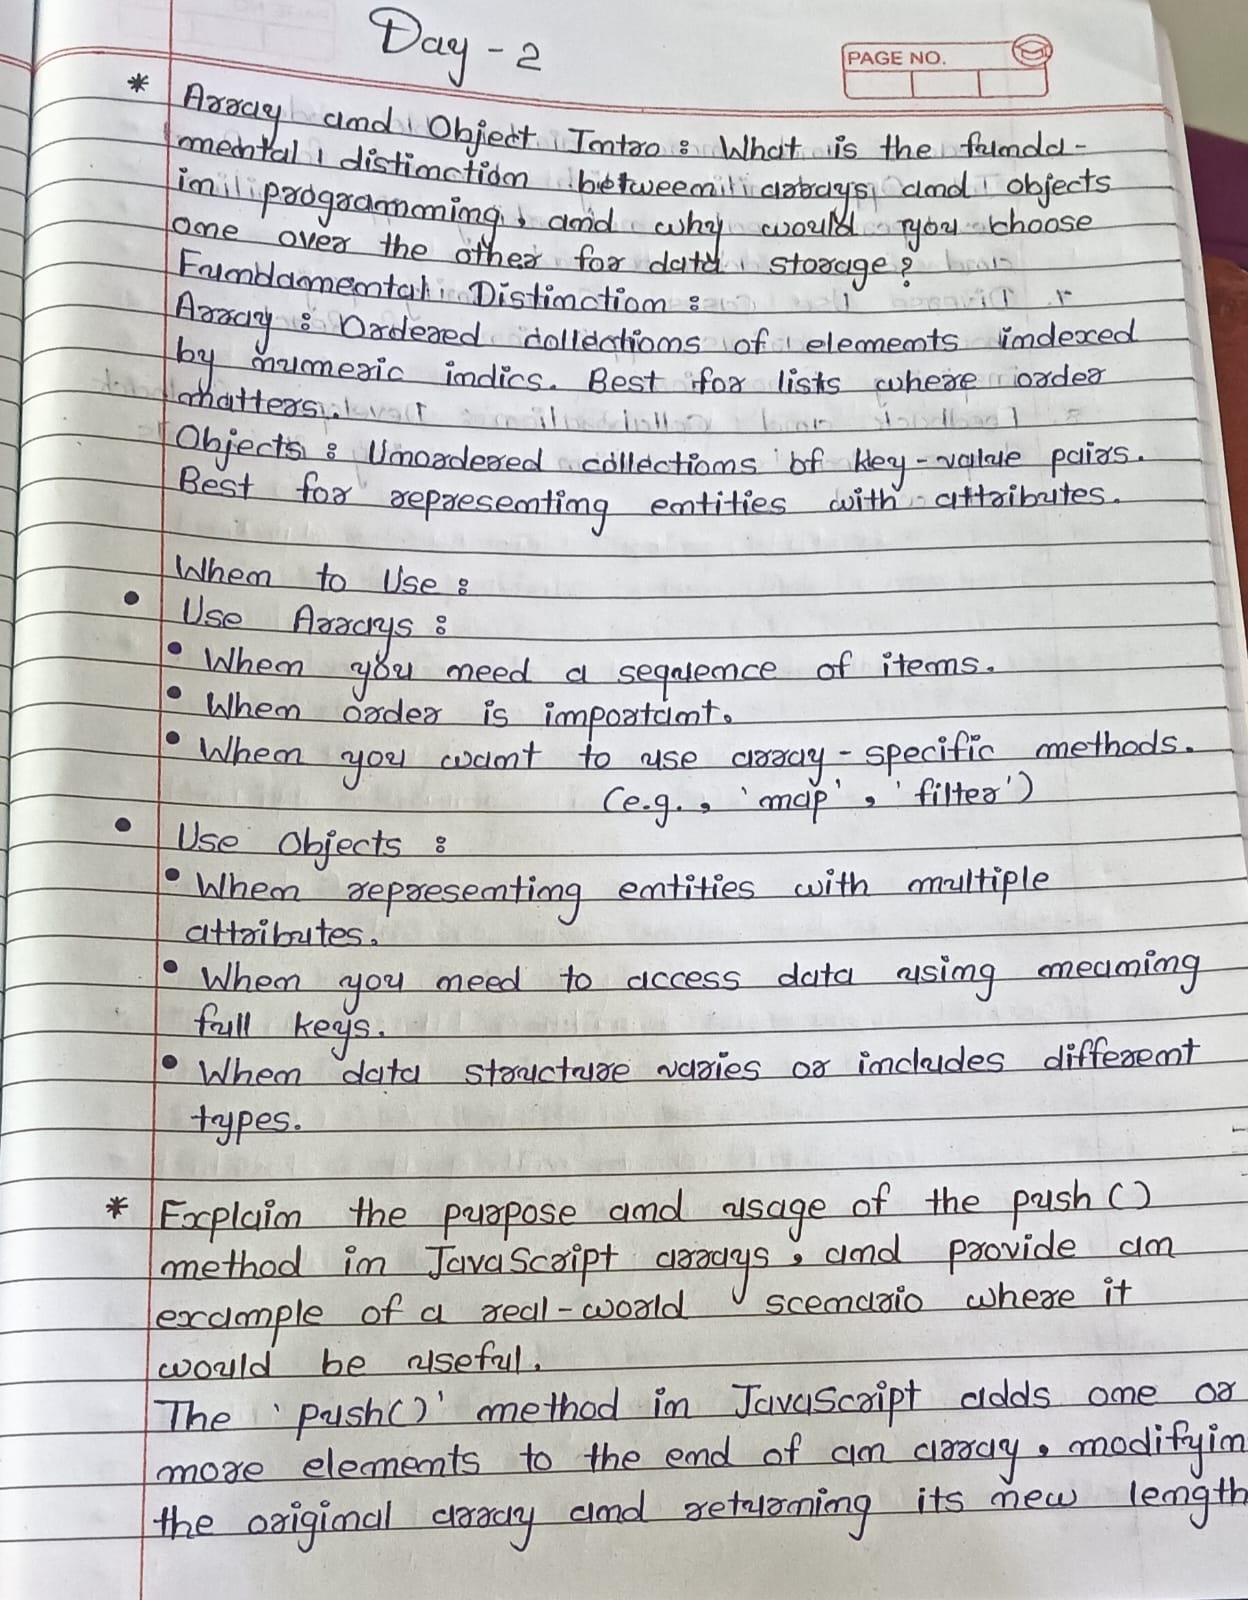 Day - 2
PAGE NO.
* Array and Object Intro : What is the funda-
mental distinction between arrays and objects
in programming, and why would you choose
one over the other for data storage?
Fundamental Distinction :
Array : Ordered collections of elements indexed
by numeric indics. Best for lists where order
matters.
Objects : Unordered collections of key-value pairs.
Best for representing entities with attributes.
When to Use :
• Use Arrays :
• When you need a sequence of items.
• When order is important.
• When you want to use array-specific methods.
(e.g., 'map', 'filter')
• Use Objects :
• When representing entities with multiple
attributes.
• When you need to access data using meaning
full keys.
• When data structure varies or includes different
types.
* Explain the purpose and usage of the push ()
method in JavaScript arrays, and provide an
example of a real-world scenario where it
would be useful.
The 'push()' method in JavaScript adds one or
more elements to the end of an array, modifyin
the original array and returning its new length